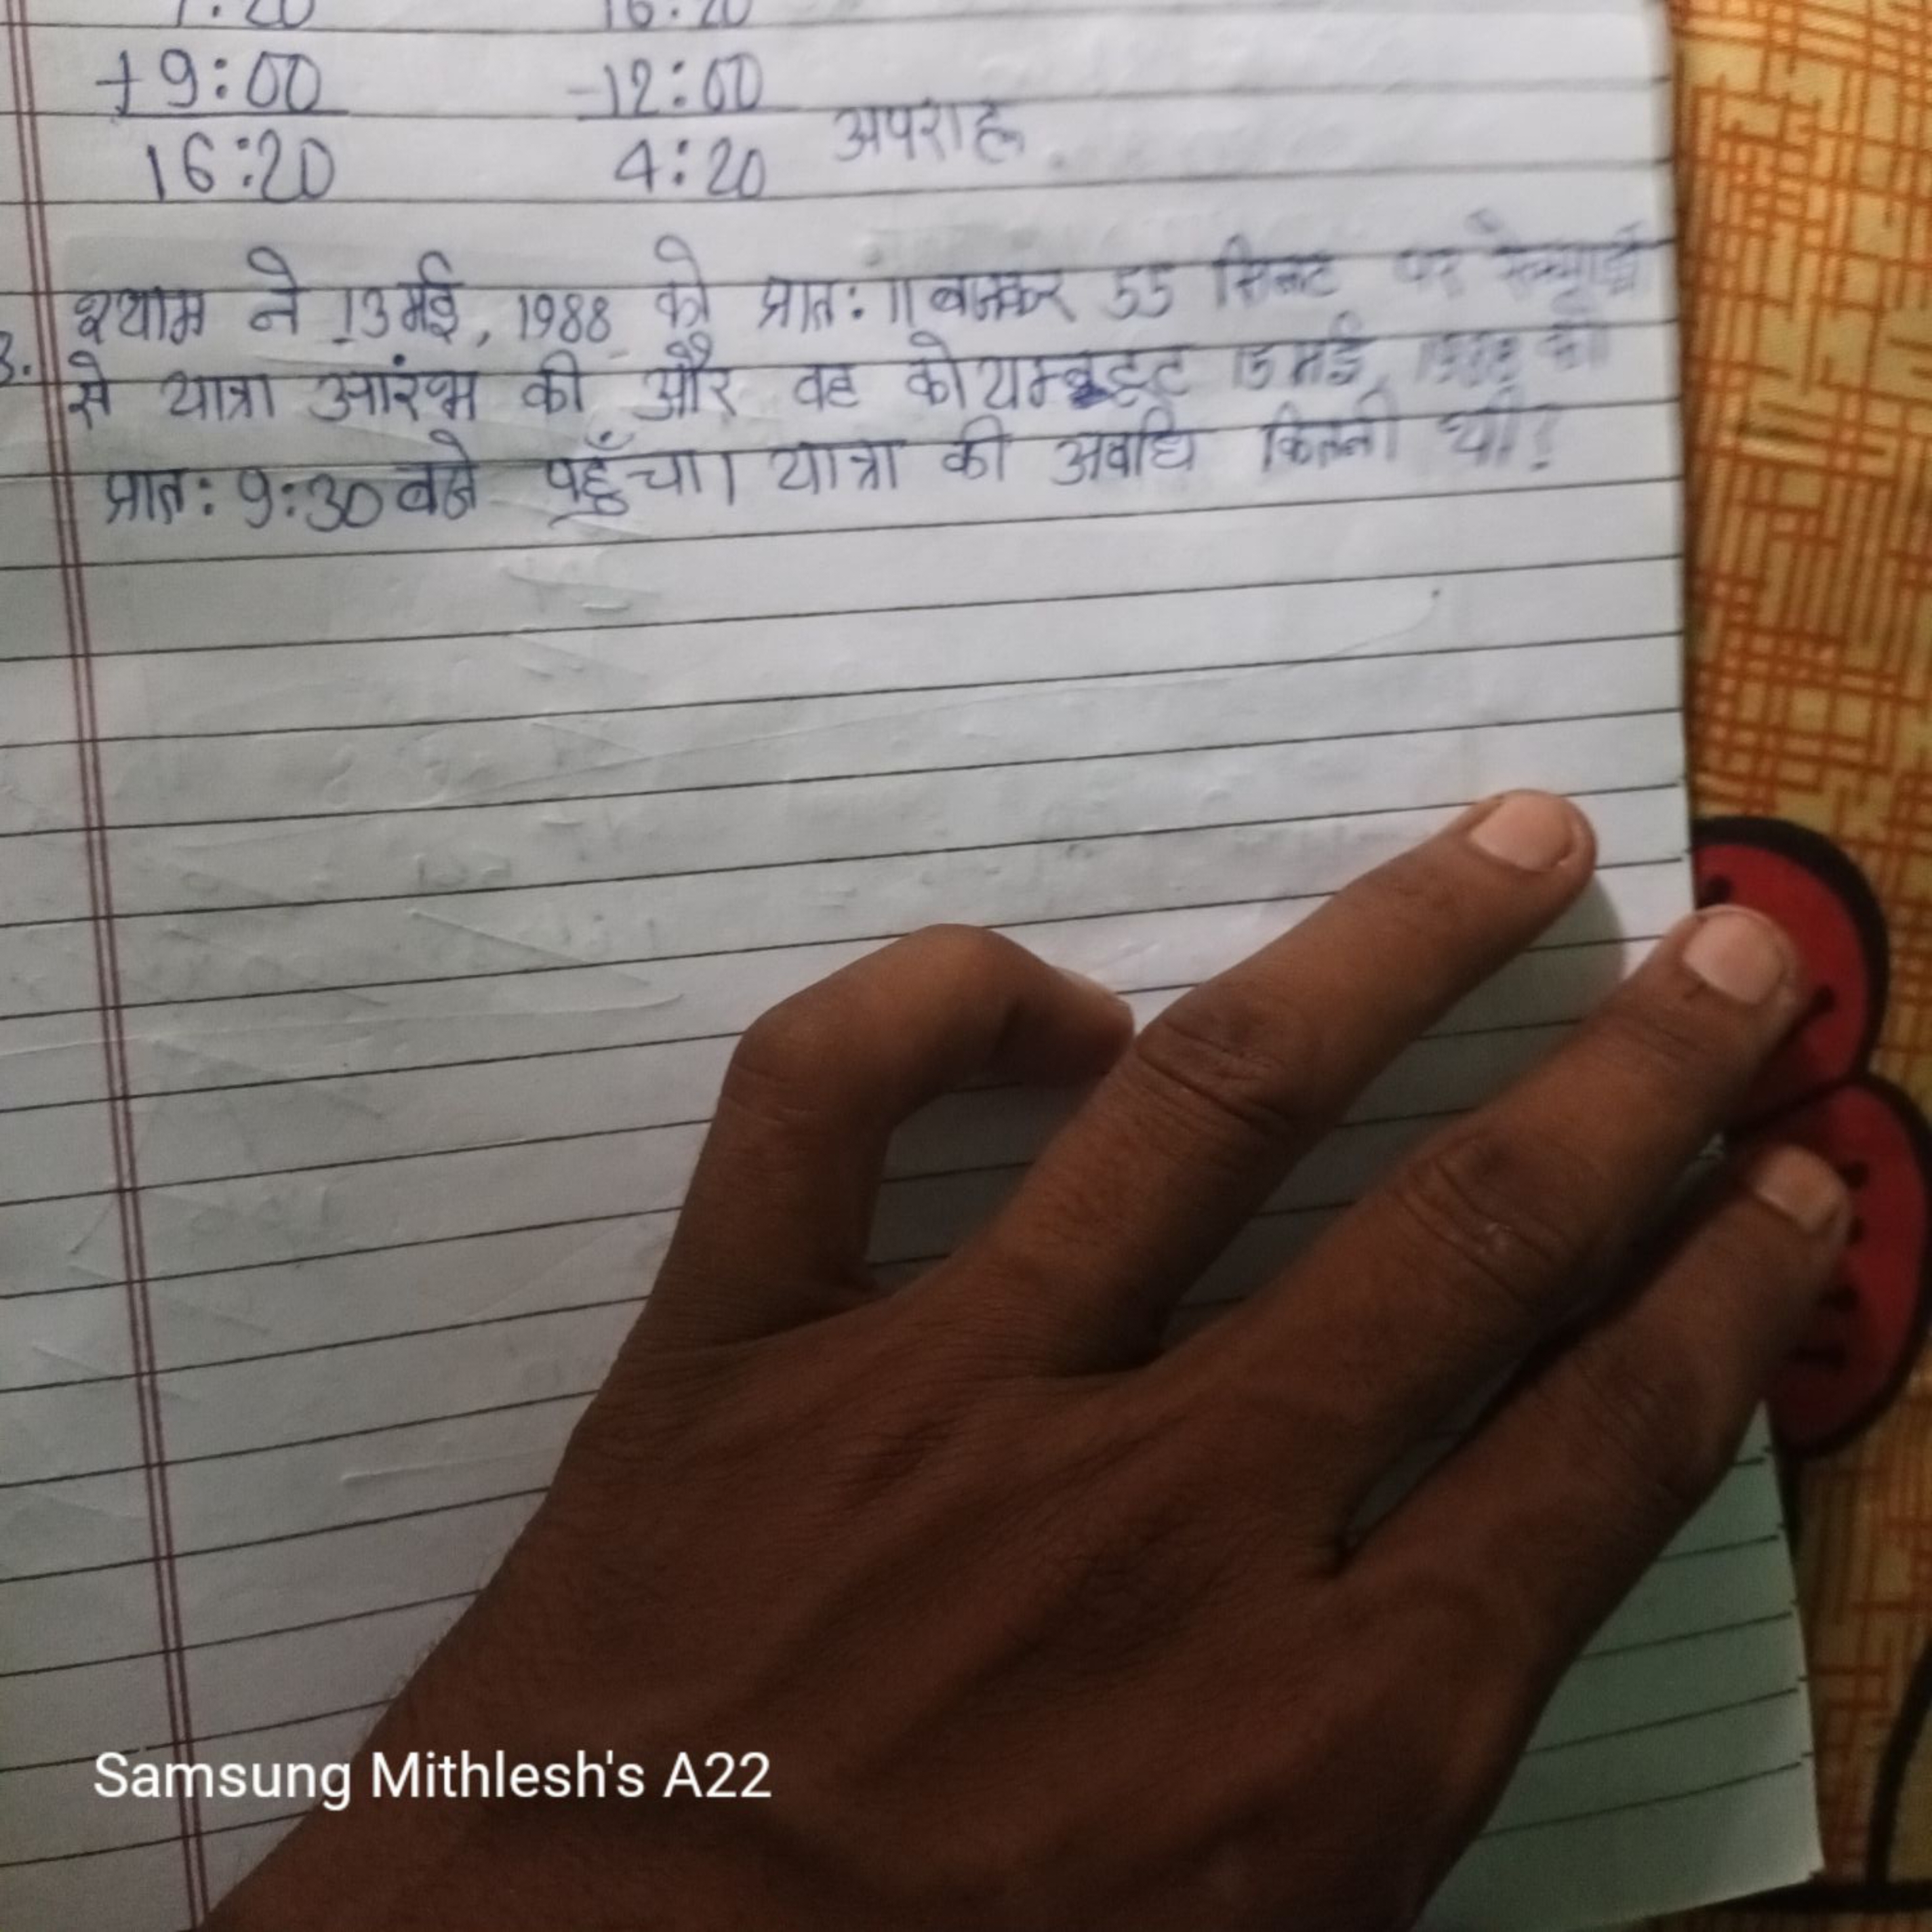 7:20 16:20
+9:00 -12:00
16:20 4:20 अपराह्न
श्याम ने 13 मई, 1988 को प्रात: 11 बजकर 55 मिनट पर रेलगाड़ी
3. से यात्रा आरंभ की और वह कोयम्बटूट 15 मई, 1988 को
प्रात: 9:30 बजे पहुँचा। यात्रा की अवधि कितनी थी?
Samsung Mithlesh's A22